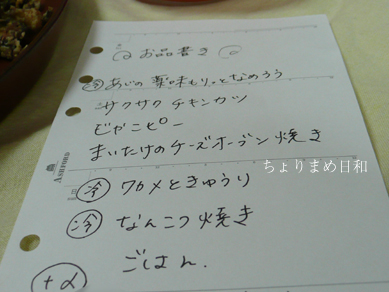 お品書き
冷 あじの薬味もりっとなめろう
サクサクチキンカツ
じゃこピー
まいたけのチーズオーブン焼き
ちょりまめ日和
冷 ワカメときゅうり
冷 なんこつ焼き
ごはん.
+α
ASHFORD